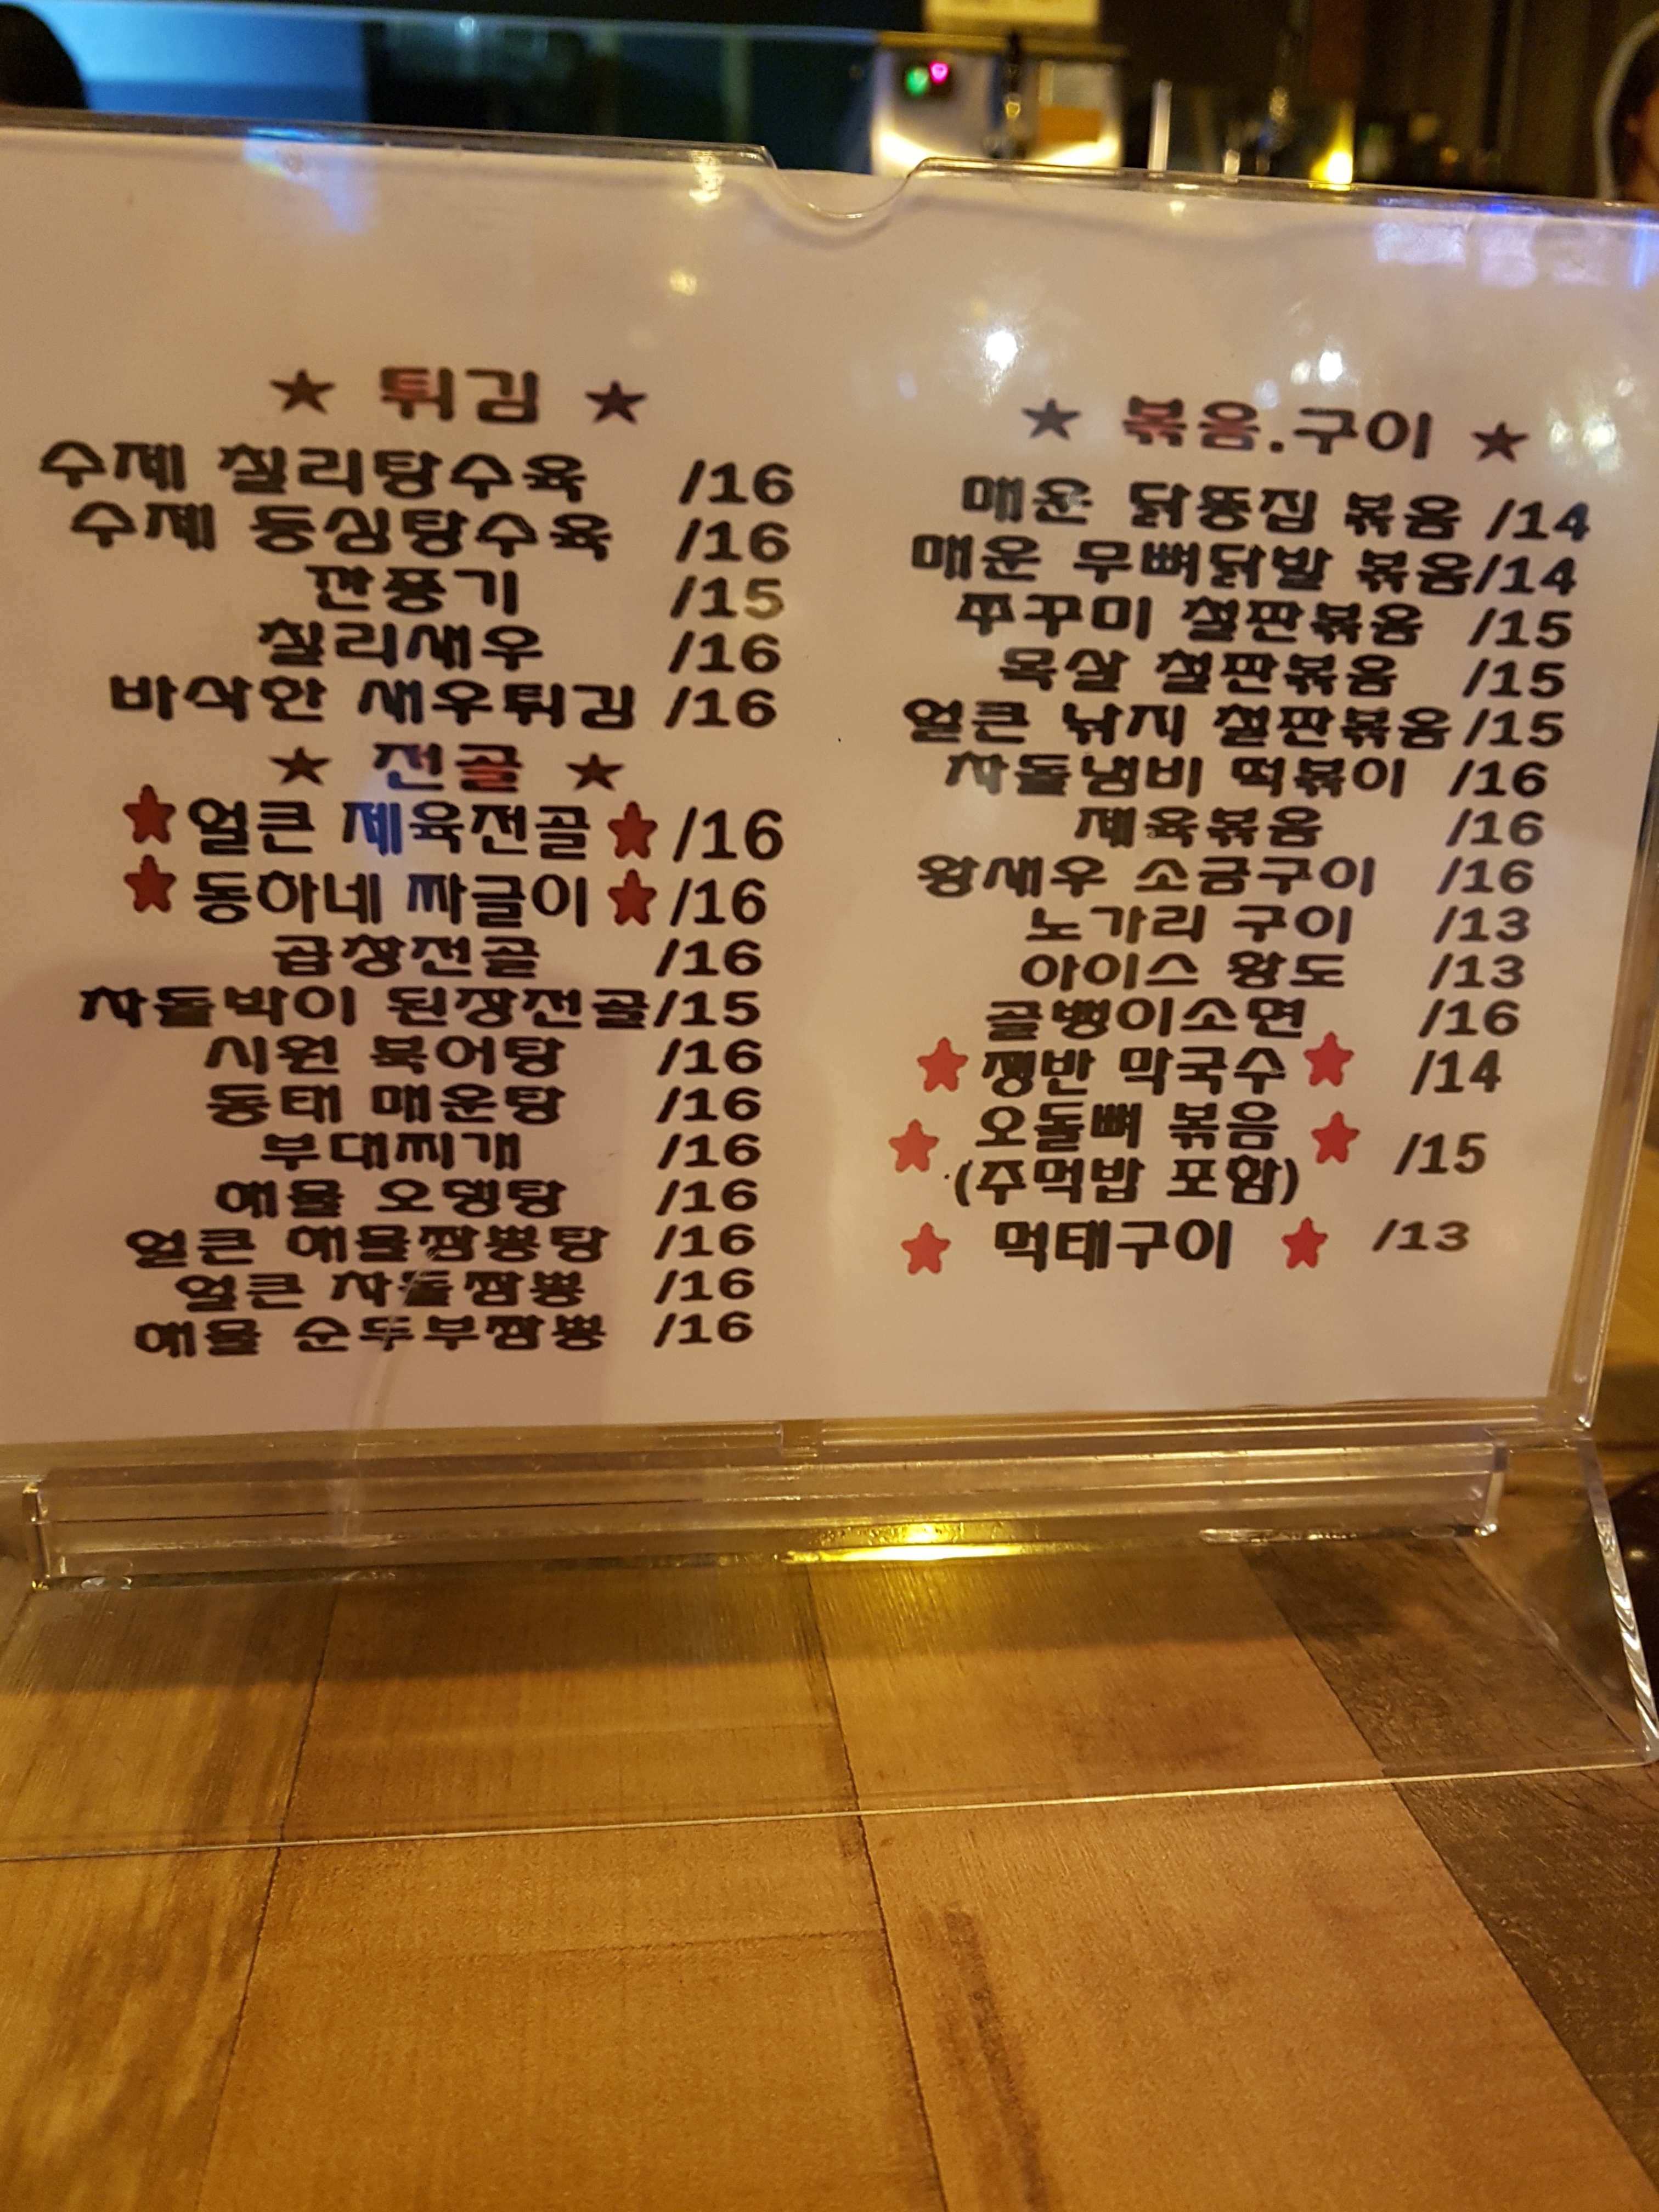 ★ 튀김 ★
수제 칠리탕수육 /16
수제 등심탕수육 /16
깐풍기 /15
칠리새우 /16
바삭한 새우튀김 /16
★ 전골 ★
★얼큰 제육전골★ /16
★동하네 짜글이★ /16
곱창전골 /16
차돌박이 된장전골/15
시원 북어탕 /16
동태 매운탕 /16
부대찌개 /16
해물 오뎅탕 /16
얼큰 해물짬뽕탕 /16
얼큰 차돌짬뽕 /16
해물 순두부짬뽕 /16
★ 볶음.구이 ★
매운 닭똥집 볶음 /14
매운 무뼈닭발 볶음/14
쭈꾸미 철판볶음 /15
목살 철판볶음 /15
얼큰 낚지 철판볶음/15
차돌냄비 떡볶이 /16
제육볶음 /16
왕새우 소금구이 /16
노가리 구이 /13
아이스 황도 /13
골뱅이소면 /16
★ 쟁반 막국수 ★ /14
★ 오돌뼈 볶음 ★ /15
(주먹밥 포함)
★ 먹태구이 ★ /13